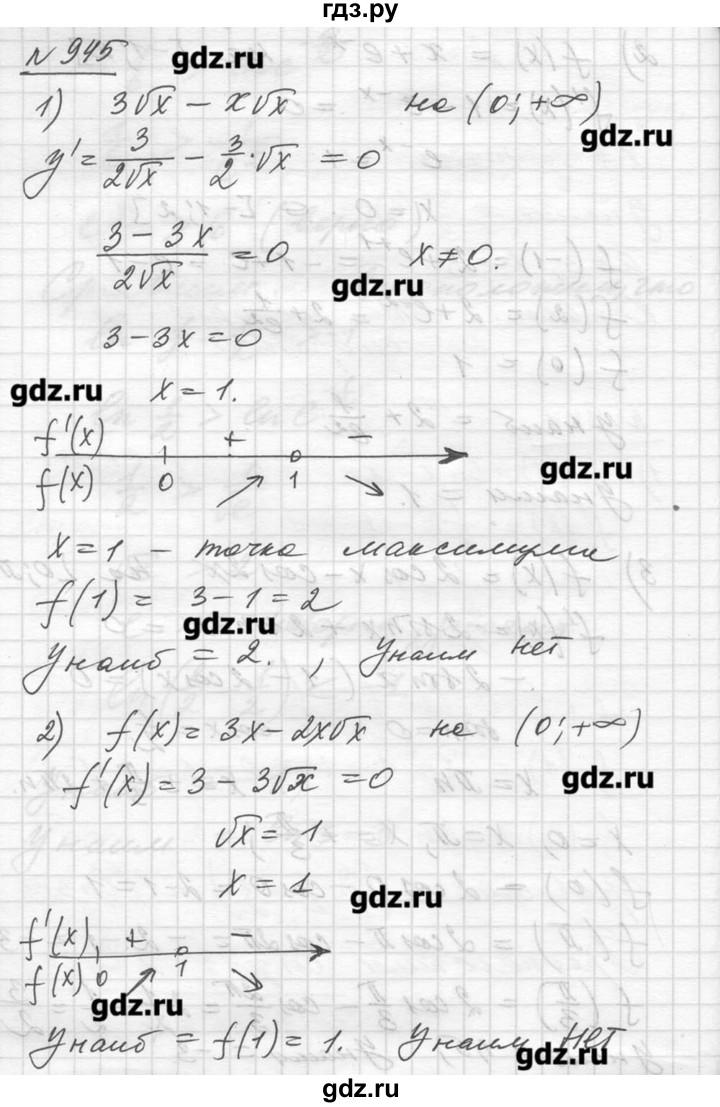 гдз.ру
N 945
gdz.ru
1) 3√x − x√x на (0; +∞)
gdz.ru
y' = 3/(2√x) − 3/2·√x = 0
(3 − 3x)/(2√x) = 0 x ≠ 0.
gdz.ru
3 − 3x = 0
gdz.ru x = 1.
f'(x) + −
gdz.ru
f(x) 0 ↗ 1 ↘
x = 1 − точка максимума
f(1) = 3 − 1 = 2
gdz.ru
Унаиб = 2. , Унаим нет
2) f(x) = 3x − 2x√x на (0; +∞)
gdz.ru
f'(x) = 3 − 3√x = 0
√x = 1
x = 1
gdz.ru
f'(x) + −
f(x) 0 ↗ 1 ↘
gdz.ru
Унаиб = f(1) = 1. Унаим нет
gdz.ru
gdz.ru